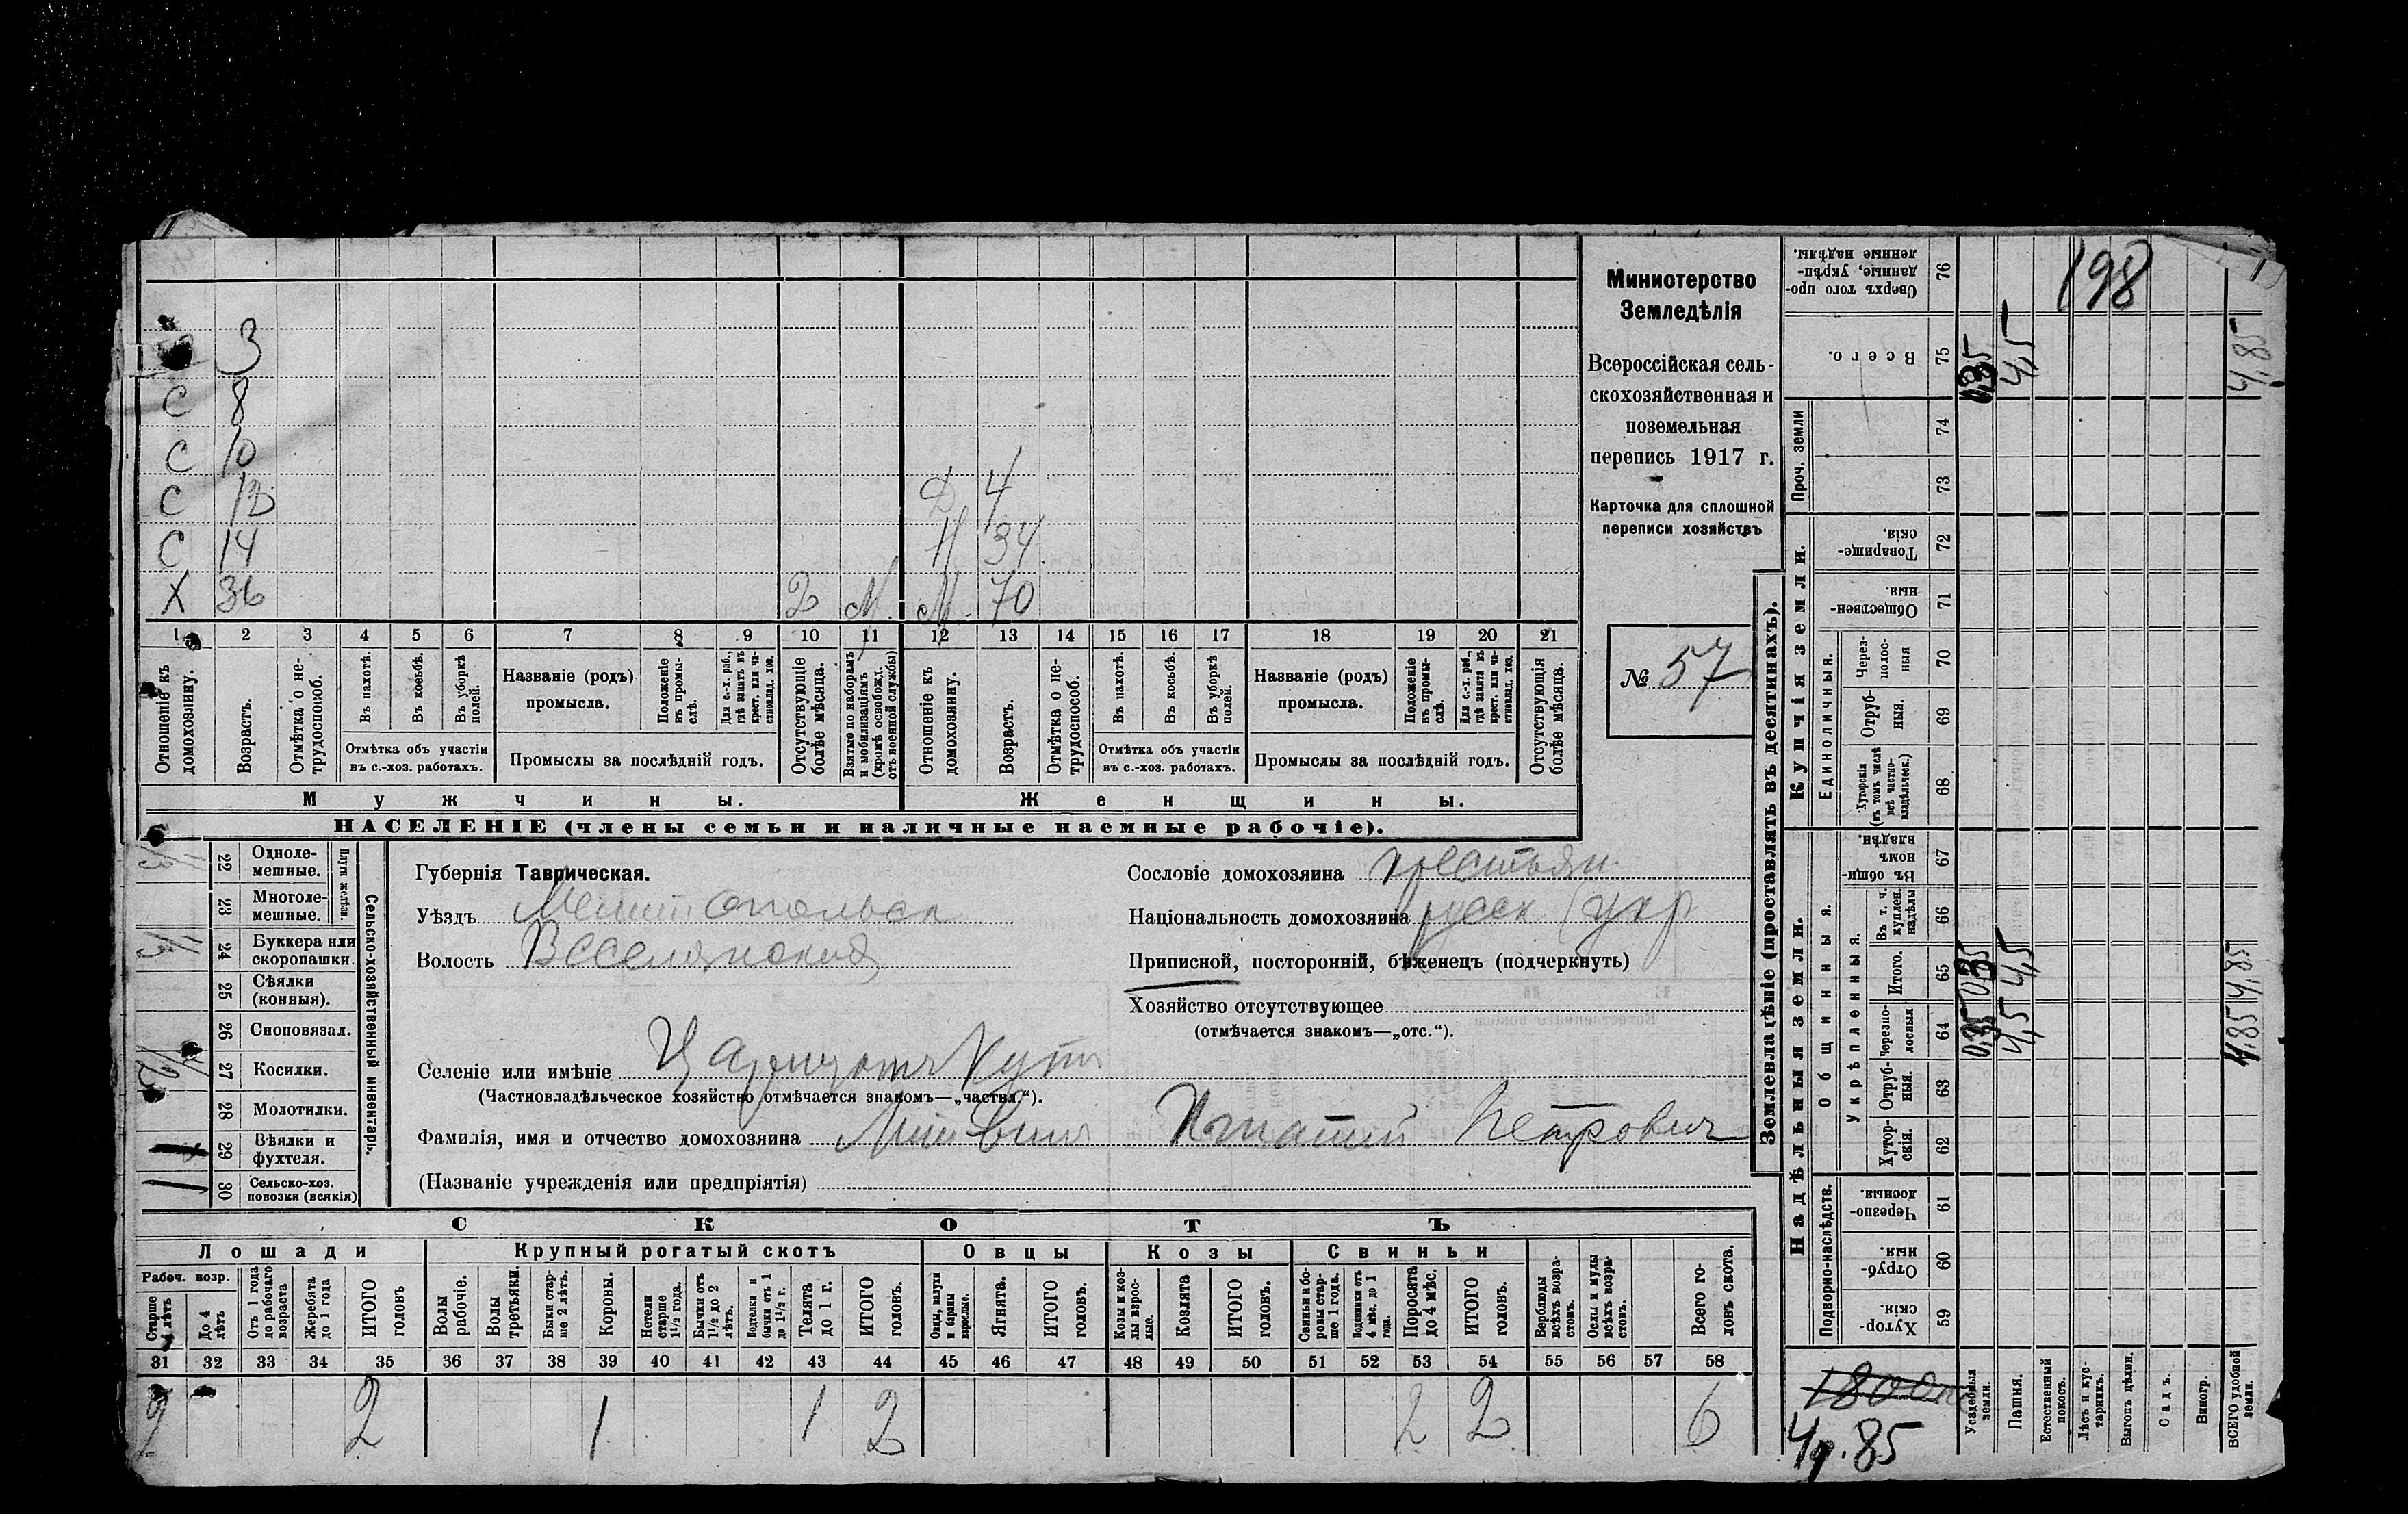 198
Министерство
Земледѣлія
Всероссійская сель-
скохозяйственная и
поземельная
перепись 1917 г.
Карточка для сплошной
переписи хозяйствъ
№ 57
3
С 8
С 10
С 12
Д 4
С 14
34
Х 36 2 М. М. 70
1 2 3 4 5 6 7 8 9 10 11 12 13 14 15 16 17 18 19 20 21
Отношеніе къ домохозяину.
Возрастъ.
Отмѣтка о не-трудоспособ.
Въ пахотѣ.
Въ косьбѣ.
Въ уборкѣ полей.
Отмѣтка объ участіи
въ с.-хоз. работахъ.
Названіе (родъ)
промысла.
Положеніе въ промы-слѣ.
Для с.-х. раб., гдѣ занятъ въ крест. или ча-стновлад. хоз.
Промыслы за послѣдній годъ.
Отсутствующіе болѣе мѣсяца.
Взятые по наборамъ и мобилизаціямъ (кромѣ освобожд. отъ военной службы)
Отношеніе къ домохозяину.
Возрастъ.
Отмѣтка о не-трудоспособ.
Въ пахотѣ.
Въ косьбѣ.
Въ уборкѣ полей.
Отмѣтка объ участіи
въ с.-хоз. работахъ.
Названіе (родъ)
промысла.
Положеніе въ промы-слѣ.
Для с.-х. раб., гдѣ занята въ крест. или ча-стновлад. хоз.
Промыслы за послѣдній годъ.
Отсутствующія болѣе мѣсяца.
Мужчины.
Женщины.
НАСЕЛЕНІЕ (члены семьи и наличные наемные рабочіе).
Сельско-хозяйственный инвентарь.
Плуги желѣзн.
22 Одноле-мешные.
23 Многоле-мешные.
24 Буккера или скоропашки.
25 Сѣялки (конныя).
26 Сноповязал.
27 Косилки.
28 Молотилки.
29 Вѣялки и фухтеля.
30 Сельско-хоз. повозки (всякія)
Губернія Таврическая.
Уѣздъ Мелитопольск
Волость Веселянская
Сословіе домохозяина крестьян.
Національность домохозяина русск (укр
Приписной, посторонній, бѣженецъ (подчеркнуть)
Хозяйство отсутствующее
(отмѣчается знакомъ—„отс.“).
Селеніе или имѣніе Царицынъ Кутъ
(Частновладѣльческое хозяйство отмѣчается знакомъ—„частвл.“).
Фамилія, имя и отчество домохозяина Литвинъ Игнатій Петрович
(Названіе учрежденія или предпріятія)
СКОТЪ
Лошади
Крупный рогатый скотъ
Овцы
Козы
Свиньи
Рабоч. возр.
Старше 4 лѣтъ
До 4 лѣтъ
Отъ 1 года до рабочаго возраста
Жеребята до 1 года
ИТОГО головъ
Волы рабочіе.
Волы третьяки.
Быки стар-ше 2 лѣтъ.
Коровы.
Нетели старше 1½ года.
Бычки отъ 1½ до 2 лѣтъ.
Подтелки и бычки отъ 1 до 1½ г.
Телята до 1 г.
ИТОГО головъ.
Овцы, валухи и бараны взрослые.
Ягнята.
ИТОГО головъ.
Козы и коз-лы взрос-лые.
Козлята
ИТОГО головъ.
Свиньи и бо-ровы стар-ше 1 года.
Подсвинки отъ 4 мѣс. до 1 года.
Поросята до 4 мѣс.
ИТОГО головъ.
Верблюды всѣхъ возра-стовъ.
Ослы и мулы всѣхъ возра-стовъ.
Всего го-ловъ скота.
31 32 33 34 35 36 37 38 39 40 41 42 43 44 45 46 47 48 49 50 51 52 53 54 55 56 57 58
2 2 1 1 2 2 2 6
Землевладѣніе (проставлять въ десятинахъ).
Надѣльныя земли.
Купчія земли.
Проч. земли
Подворно-наслѣдств.
Общинныя.
Укрѣпленныя.
Единоличныя.
Хутор-скія. 59
Отруб-ныя. 60
Черезпо-лосныя. 61
Хутор-скія. 62
Отруб-ныя. 63
Черезпо-лосныя 64
Итого. 65
Въ т. ч. куплен. надѣлы 66
Въ общин-номъ владѣн. 67
Хуторскія (въ томъ числѣ всѣ частно-владѣльческ.) 68
Отруб-ныя. 69
Через-полос-ныя 70
Обществен-ныя. 71
Товарище-скія. 72
73
74
Всего. 75
Сверхъ того про-данные, укрѣп-ленные надѣлы. 76
Усадебныя земли. 0,35 0,35 0,35
Пашня. 4,5 4,5 4,5
Естественный покосъ.
Лѣсъ и кус-тарникъ.
Выгонъ цѣлин.
Садъ.
Виногр.
ВСЕГО удобной земли. 4,85 4,85 4,85